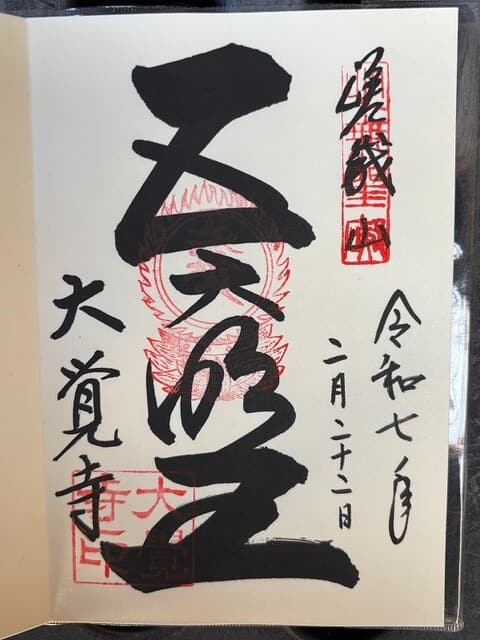 嵯峨山
令和七年
二月二十二日
五大明王
大覚寺
大覺寺印